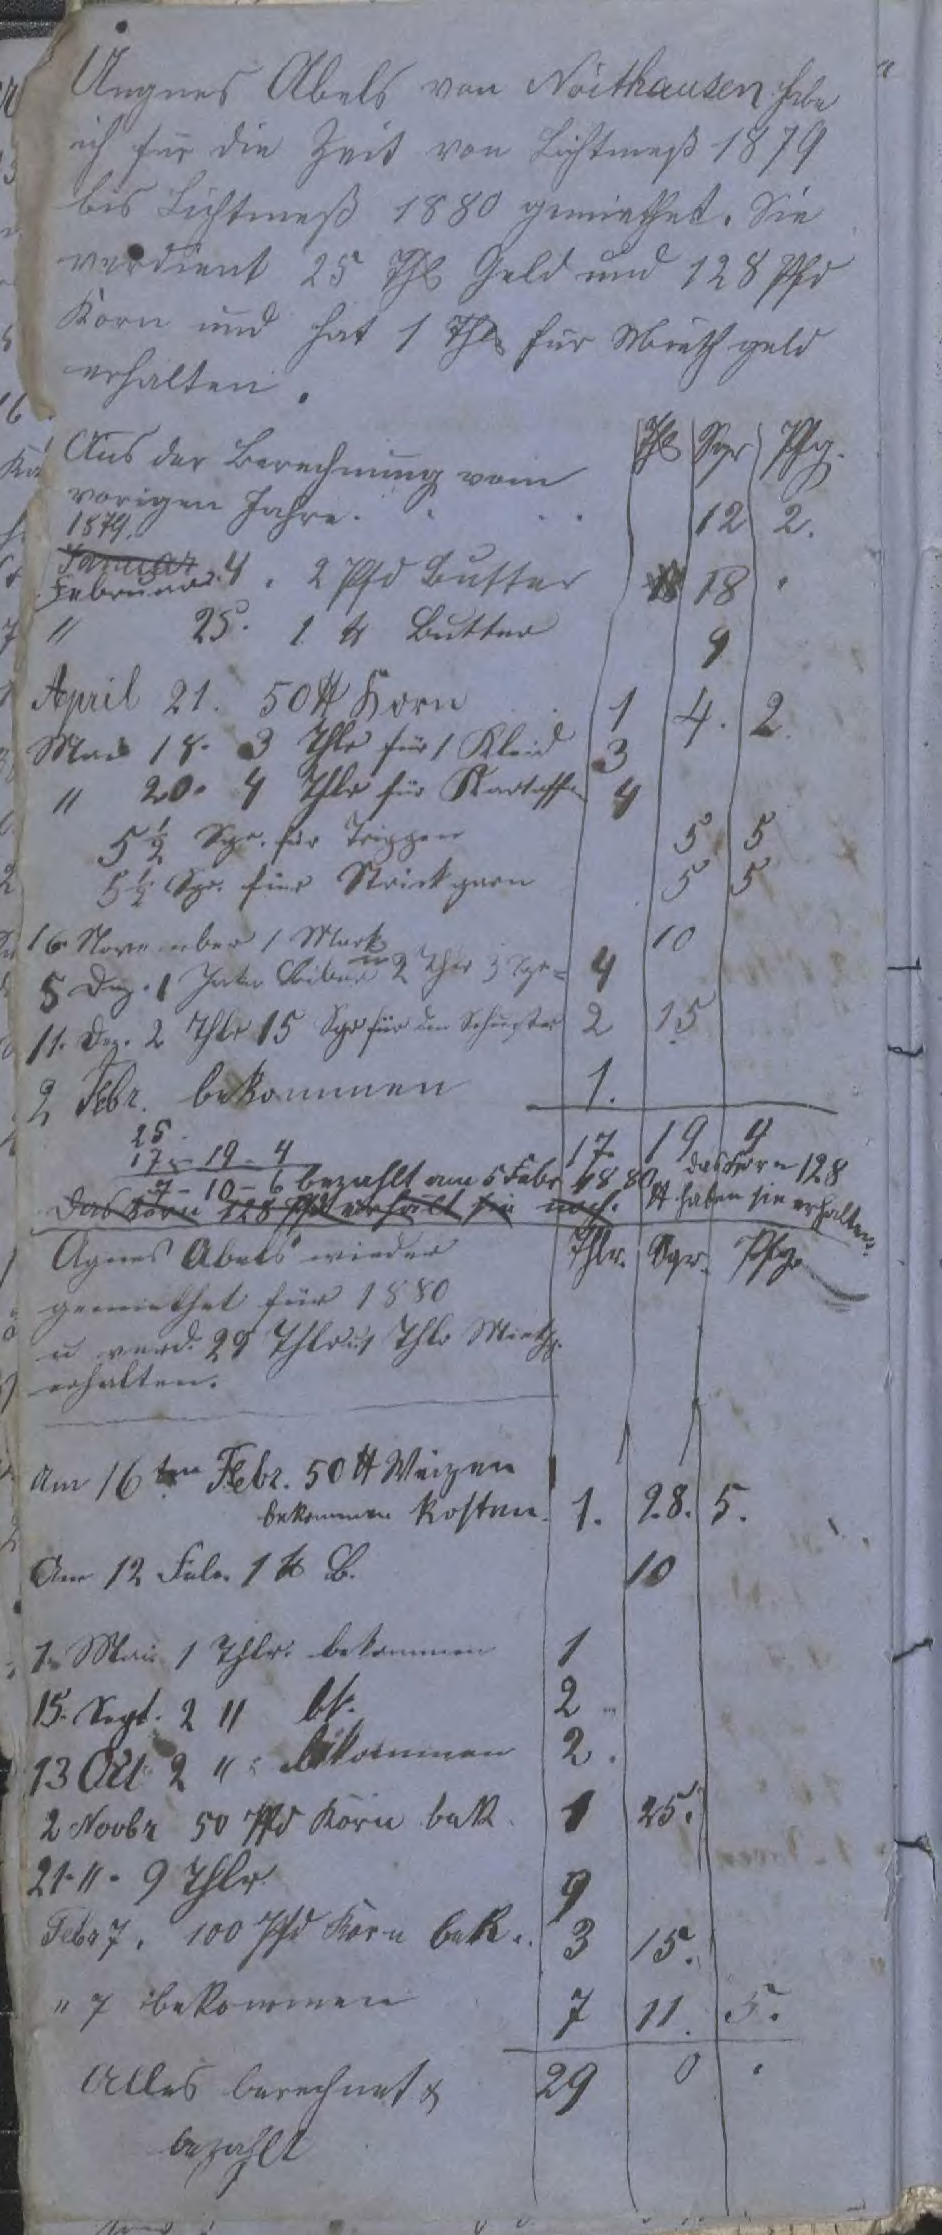 Angnes Abels von Nöithausen habe
ich für die Zeit von Lichtmeß 1879
bis Lichtmeß 1880 gemiethet. Sie
verdient 25 Thl Geld und 128 Pfd
Korn und hat 1 Thlr für Mieth geld
erhalten.
Thl Sgr Pfg.
Aus der Berechnung vom
vorigen Jahre. 12 2.
1879.
Januar
Februar 4. 2 Pfd Butter 18
" 25. 1 ℔ Butter 9
April 21. 50 ℔ Korn 1 4. 2.
Mai 18. 3 Thlr für 1 Kleid 3
" 20. 4 Thlr für Kartoffe 4
5 ½ Sgr. für 5 5
5 ½ Sgr. für Strickgarn 5 5
16. November 1 Mark 10
5 Dez. 1 2 Thlr 3 Sgr 4
11. Dez. 2 Thlr 15 Sgr für den Schuster 2 15
2 Febr. bekommen 1.
17. 19 4
25.
17 - 19 - 4
7 - 10 - 6 bezahlt am 5 Febr 1880 das Korn 128
Das Korn 128 Pfd erhält sie noch. ℔ haben sie erhalten.
Agnes Abels wieder Thlr. Sgr. Pfg.
gemiethet für 1880
u verd. 29 Thlr u 1 Thlr Miethg.
erhalten.
Am 16ten Febr. 50 ℔ Weizen
bekommen kosten. 1. 28. 5.
Am 12 Febr. 1 ℔ B. 10
1. Mai 1 Thlr. bekommen 1
15. Sept. 2 " bk. 2
13 Okt 2 " bekommen 2.
2 Novbr 50 Pfd Korn bek. 1 25.
21. " . 9 Thlr 9
Febr 7. 100 Pfd Korn bek. 3 15.
" 7 bekommen 7 11. 5.
Alles berechnet & 29 0 .
bezahlt